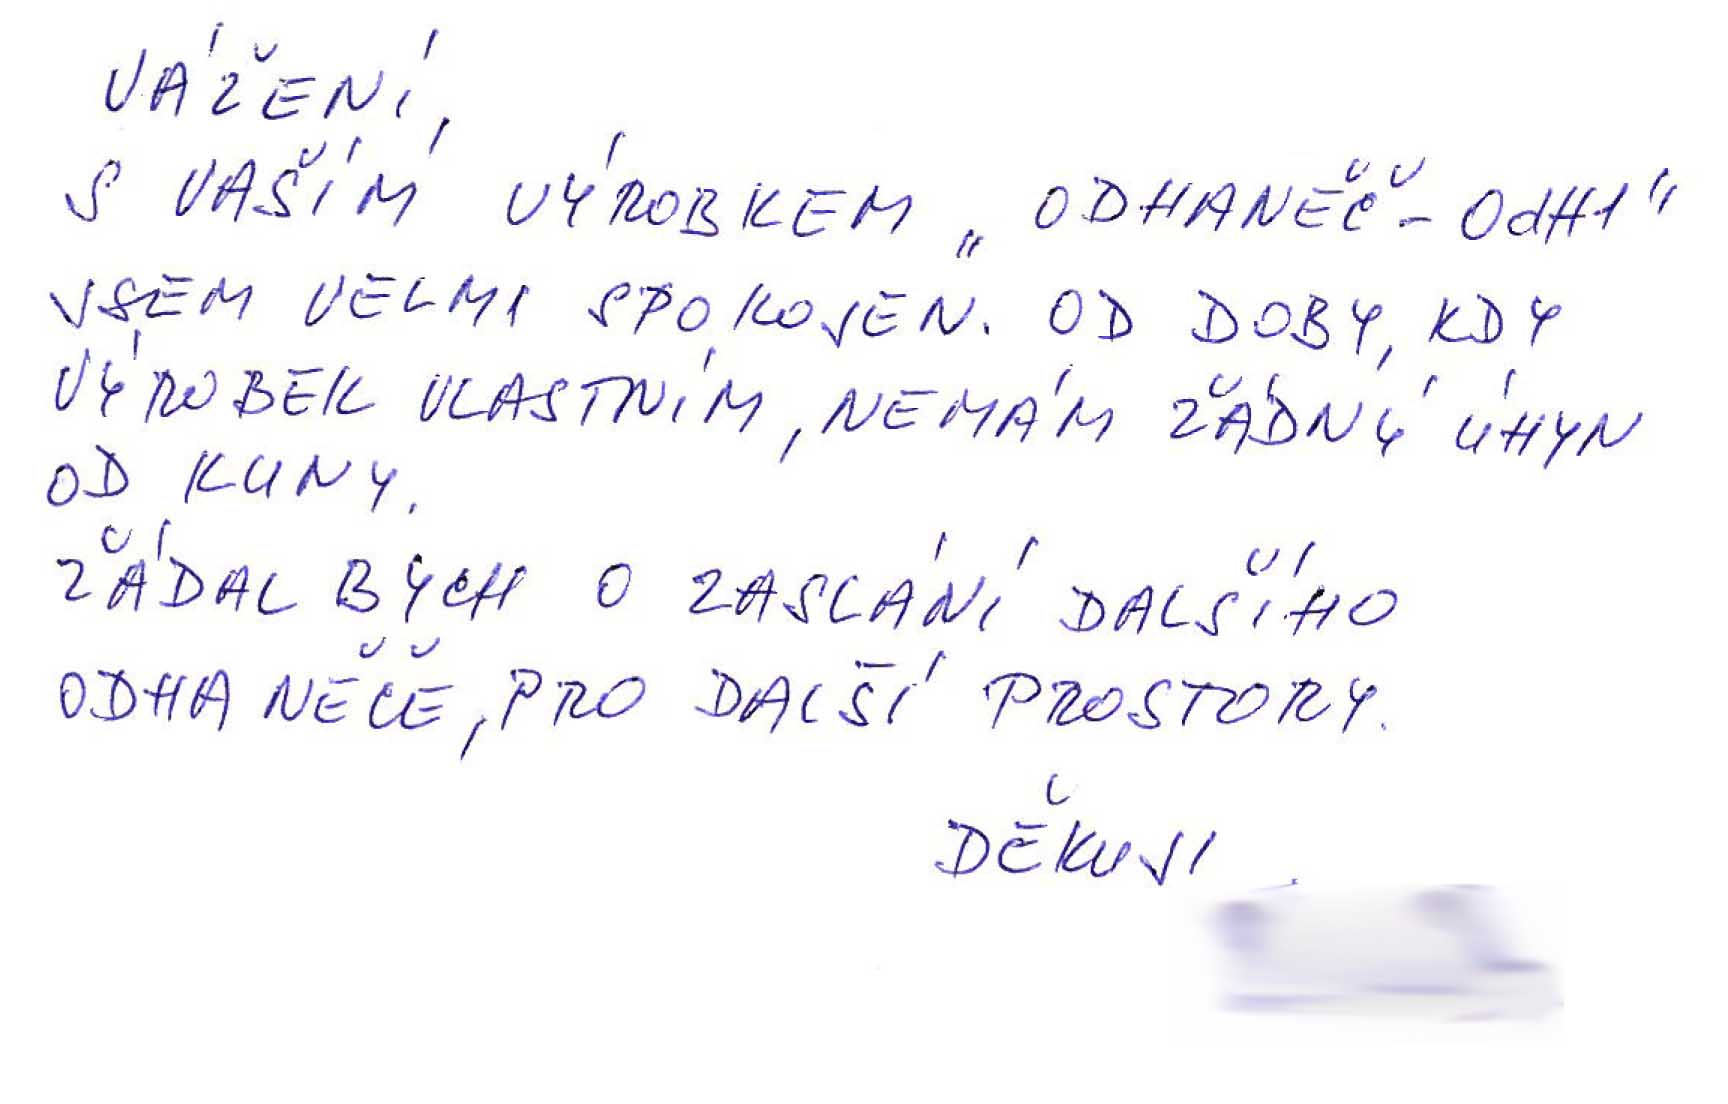 VÁŽENÍ,
S VAŠÍM VÝROBKEM „ODHANĚČ - OdH1"
JSEM VELMI SPOKOJEN. OD DOBY, KDY
VÝROBEK VLASTNÍM, NEMÁM ŽÁDNÝ ÚHYN
OD KUNY.
ŽÁDAL BYCH O ZASLÁNÍ DALŠÍHO
ODHANĚČE, PRO DALŠÍ PROSTORY.
DĚKUJI